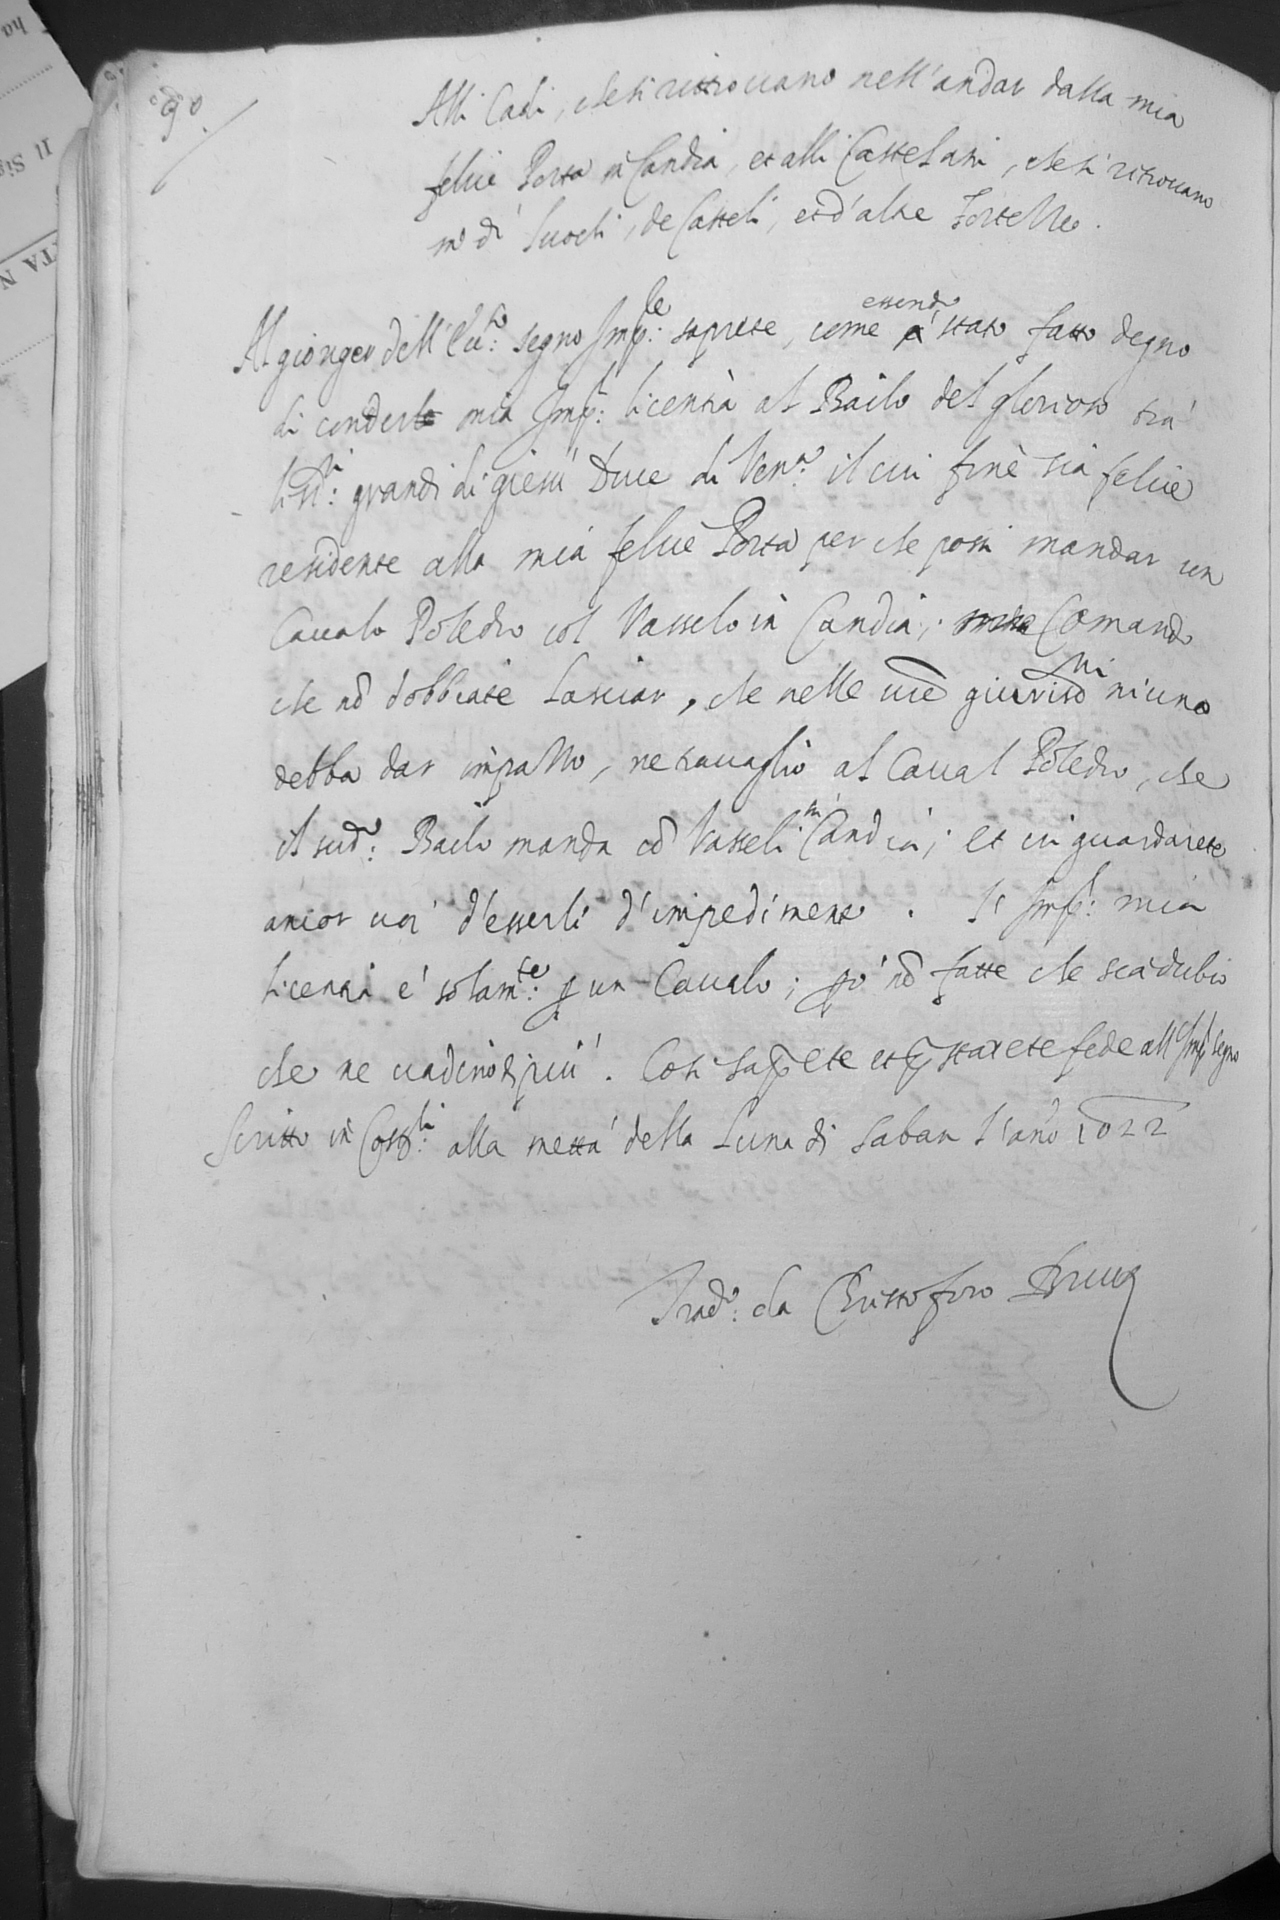 90
Alli Cadi, che si rittrovano nell'andar dalla mia
felice Porta in Candia, et alli Castelani, che si ritrovano
in d.i luochi, de Casteli, et d'altre fortezze.
Al gionger dell'Ecc.so segno Imp.le saprete, come essendo stato fatto degno
di conderli mia Imp.l licentia al Bailo del glorioso tra'
li ss.ri grandi di giesù Duce di Ven.a il cui fine sia felice
residente alla mia felice Porta per che possi mandar un
Cavalo Poledro col Vasselo in Candia; Comando
che nō dobbiate lassiar, che nelle vre giurisd.ni niuno
debba dar impazzo, ne travaglio al Caval Poledro, che
il sud.o Bailo manda cō Vasseli in Candia; et vi guardarete
ancor voi d'esserli d'impedimento. L'Imp.l mia
licentia e' solam.te: p un Cavalo; però nō fatte che sia dubio
che ne vadino di più. Così saprete et prestarete fede all'Imp.l segno
Scritto in Cospli. alla mettà della Luna di Saban l'anō 1022
Trad.o: da Christoforo Bruti